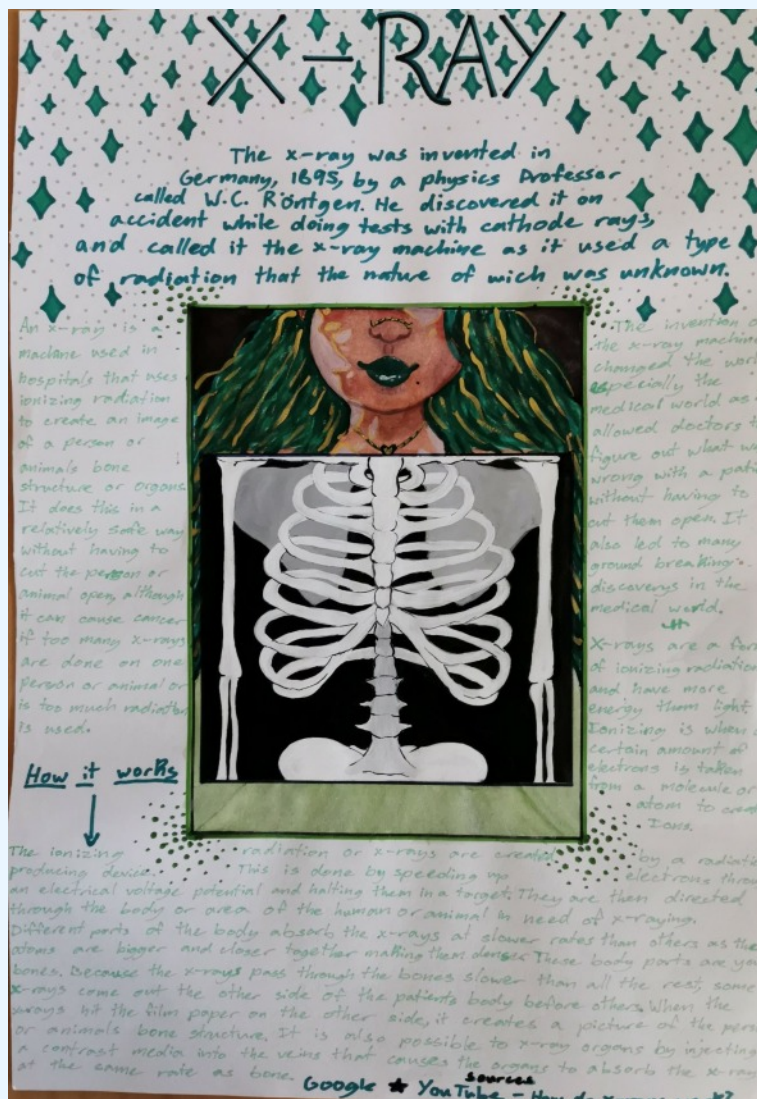 X-RAY
The x-ray was invented in
Germany, 1895, by a physics Professor
called W.C. Röntgen. He discovered it on
accident while doing tests with cathode rays,
and called it the x-ray machine as it used a type
of radiation that the nature of wich was unknown.
An x-ray is a
machine used in
hospitals that uses
ionizing radiation
to create an image
of a person or
animals bone
structure or organs.
It does this in a
relatively safe way
without having to
cut the person or
animal open, although
it can cause cancer
if too many x-rays
are done on one
person or animal or
is too much radiation
is used.
The invention
the x-ray machine
changed the
especially the
medical world as
allowed doctors
figure out what
wrong with a
without having to
cut them open. It
also led to many
ground breaking
discoverys in the
medical world.
X-rays are a
of ionizing radiation
and have more
energy them light.
Ionizing is when
certain amount of
electrons is taken
from a molecule or
atom to
Ions.
How it works
The ionizing radiation or x-rays are created by a
producing device. This is done by speeding up electrons
an electrical voltage potential and halting them in a target. They are then directed
through the body or area of the human or animal in need of x-raying.
Different parts of the body absorb the x-rays at slower rates than others as the
atoms are bigger and closer together making them denser. These body parts are
bones. Because the x-rays pass through the bones slower than all the rest, some
x-rays come out the other side of the patients body before others. When the
x-rays hit the film paper on the other side, it creates a picture of the
or animals bone structure. It is also possible to x-ray organs by injecting
a contrast media into the veins that causes the organs to absorb the
at the same rate as bone.
sources
Google ★ YouTube - How do x-rays work?